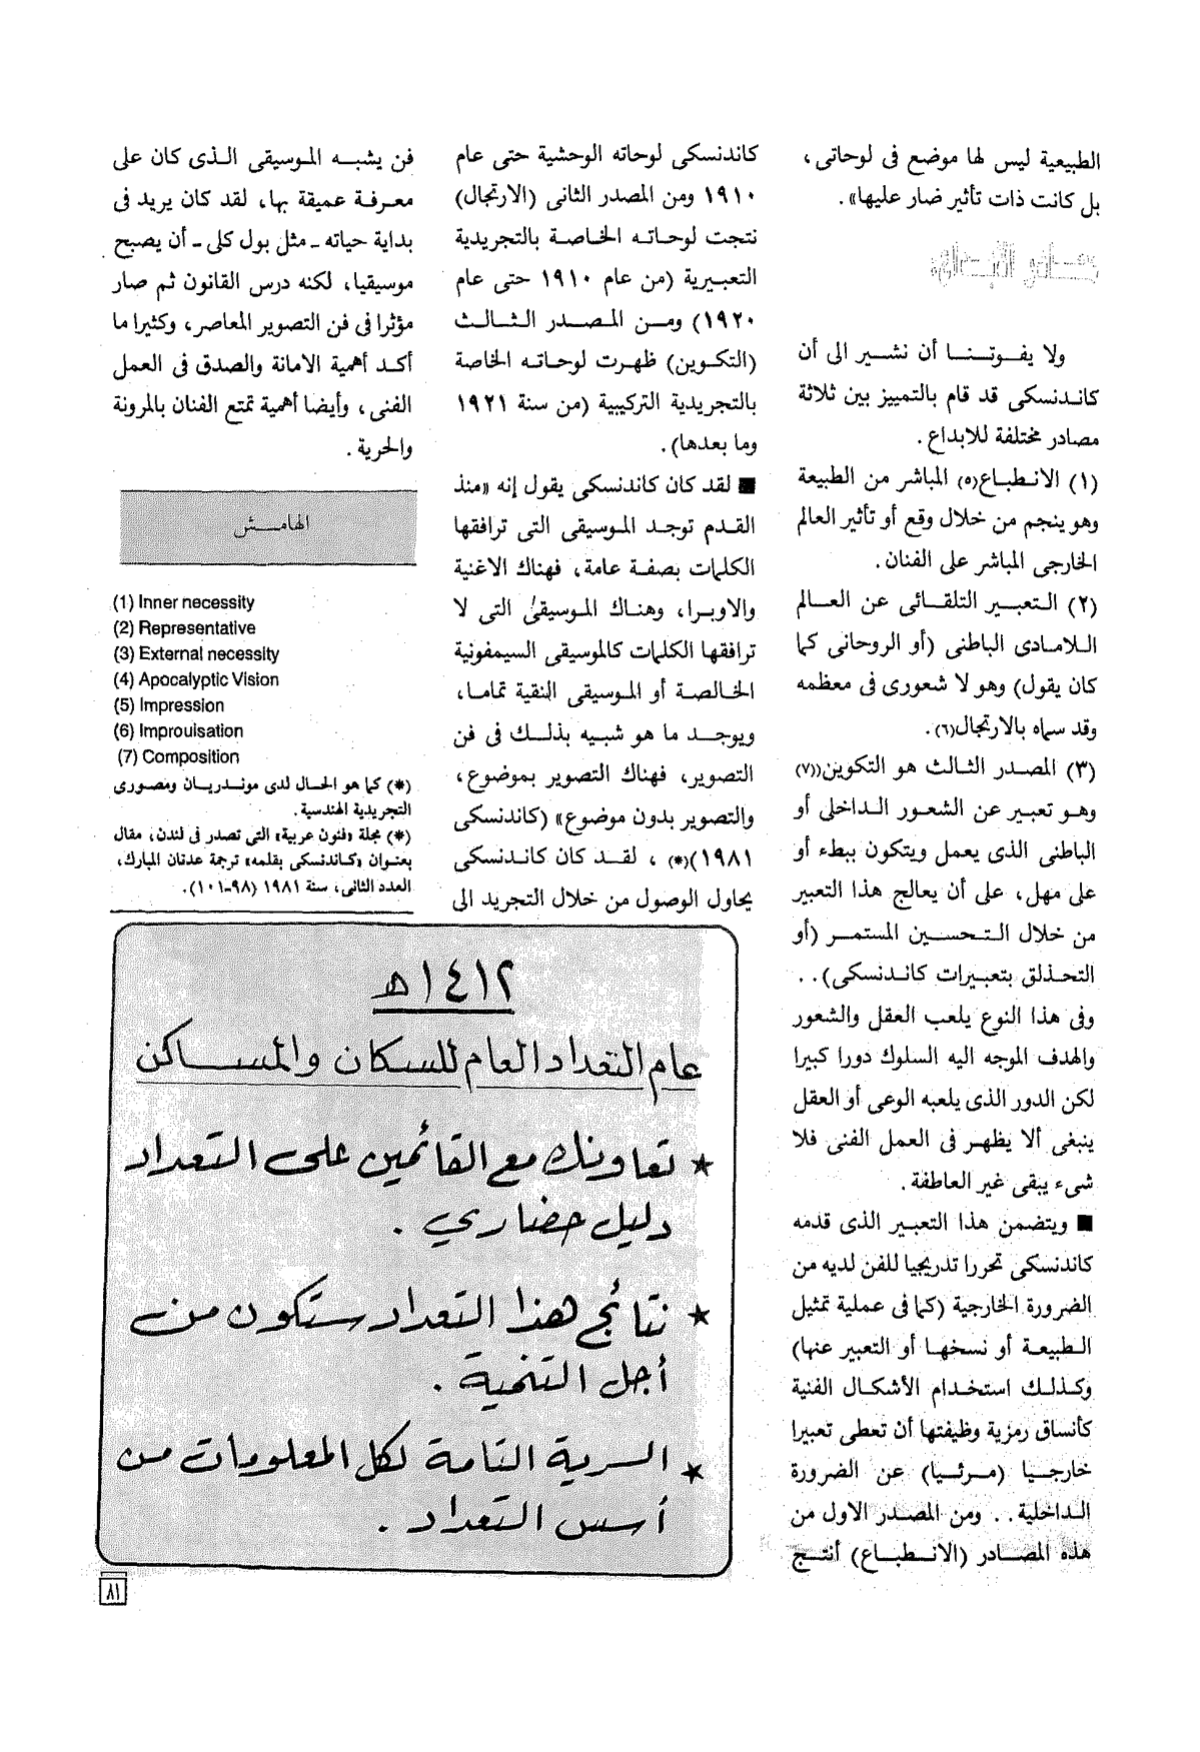 الطبيعية ليس لها موضع فى لوحاتى،
بل كانت ذات تأثير ضار عليها».
ولا يفوتنا أن نشير الى أن
كاندنسكى قد قام بالتمييز بين ثلاثة
مصادر مختلفة للابداع.
(١) الانطباع(٥) المباشر من الطبيعة
وهو ينجم من خلال وقع أو تأثير العالم
الخارجى المباشر على الفنان.
(٢) التعبير التلقائى عن العالم
اللامادى الباطنى (أو الروحانى كما
كان يقول) وهو لا شعورى فى معظمه
وقد سماه بالارتجال(٦).
(٣) المصدر الثالث هو التكوين((٧)
وهو تعبير عن الشعور الداخلى أو
الباطنى الذى يعمل ويتكون ببطء أو
على مهل، على أن يعالج هذا التعبير
من خلال التحسين المستمر (أو
التحذلق بتعبيرات كاندنسكى)..
وفى هذا النوع يلعب العقل والشعور
والهدف الموجه اليه السلوك دورا كبيرا
لكن الدور الذى يلعبه الوعى أو العقل
ينبغى ألا يظهر فى العمل الفنى فلا
شىء يبقى غير العاطفة.
■ ويتضمن هذا التعبير الذى قدمه
كاندنسكى تحررا تدريجيا للفن لديه من
الضرورة الخارجية (كما فى عملية تمثيل
الطبيعة أو نسخها أو التعبير عنها)
وكذلك استخدام الأشكال الفنية
كأنساق رمزية وظيفتها أن تعطى تعبيرا
خارجيا (مرئيا) عن الضرورة
الداخلية.. ومن المصدر الاول من
هذه المصادر (الانطباع) أنتج
كاندنسكى لوحاته الوحشية حتى عام
١٩١٠ ومن المصدر الثانى (الارتجال)
نتجت لوحاته الخاصة بالتجريدية
التعبيرية (من عام ١٩١٠ حتى عام
١٩٢٠) ومن المصدر الثالث
(التكوين) ظهرت لوحاته الخاصة
بالتجريدية التركيبية (من سنة ١٩٢١
وما بعدها).
■ لقد كان كاندنسكى يقول إنه «منذ
القدم توجد الموسيقى التى ترافقها
الكلمات بصفة عامة، فهناك الاغنية
والاوبرا، وهناك الموسيقى التى لا
ترافقها الكلمات كالموسيقى السيمفونية
الخالصة أو الموسيقى النقية تماما،
ويوجد ما هو شبيه بذلك فى فن
التصوير، فهناك التصوير بموضوع،
والتصوير بدون موضوع» (كاندنسكى
١٩٨١)(*)، لقد كان كاندنسكى
يحاول الوصول من خلال التجريد الى
فن يشبه الموسيقى الذى كان على
معرفة عميقة بها، لقد كان يريد فى
بداية حياته ـ مثل بول كلى ـ أن يصبح
موسيقيا، لكنه درس القانون ثم صار
مؤثرا فى فن التصوير المعاصر، وكثيرا ما
أكد أهمية الامانة والصدق فى العمل
الفنى، وأيضا أهمية تمتع الفنان بالمرونة
والحرية.
الهامش
(1) Inner necessity
(2) Representative
(3) External necessity
(4) Apocalyptic Vision
(5) Impression
(6) Improuisation
(7) Composition
(*) كما هو الحال لدى موندريان ومصورى
التجريدية الهندسية.
(*) مجلة «فنون عربية» التى تصدر فى لندن، مقال
بعنوان «كاندنسكى بقلمه» ترجمة عدنان المبارك،
العدد الثانى، سنة ١٩٨١ (٩٨ـ١٠١).
١٤١٢هـ
عام التعداد العام للسكان والمساكن
★ تعاونك مع القائمين على التعداد
دليل حضاري.
★ نتائج هذا التعداد ستكون من
أجل التنمية.
★ السرية التامة لكل المعلومات من
أسس التعداد.
٨١